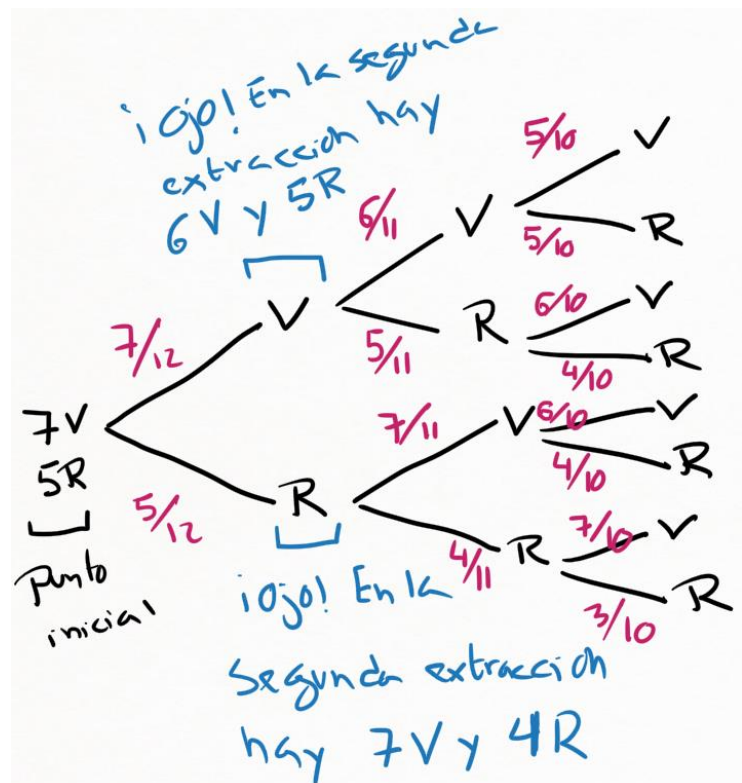 ¡Ojo! En la segunda
extracción hay
6V y 5R
7V
5R
punto
inicial
7/12
V
5/12
R
6/11
V
5/11
R
7/11
V
4/11
R
5/10
V
5/10
R
6/10
V
4/10
R
6/10
V
4/10
R
7/10
V
3/10
R
¡Ojo! En la
segunda extracción
hay 7V y 4R